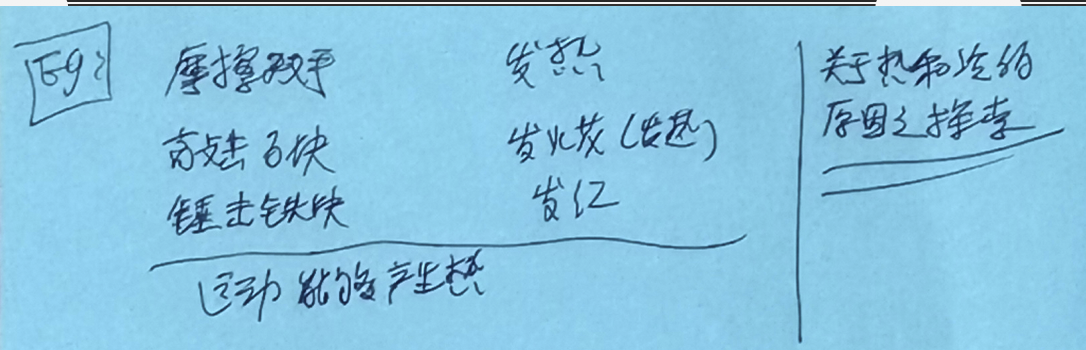 Eg: 摩擦双手 发热
敲击石块 发火花(发热)
锤击铁块 发红
运动能够产生热
关于热和冷的
原因之探索